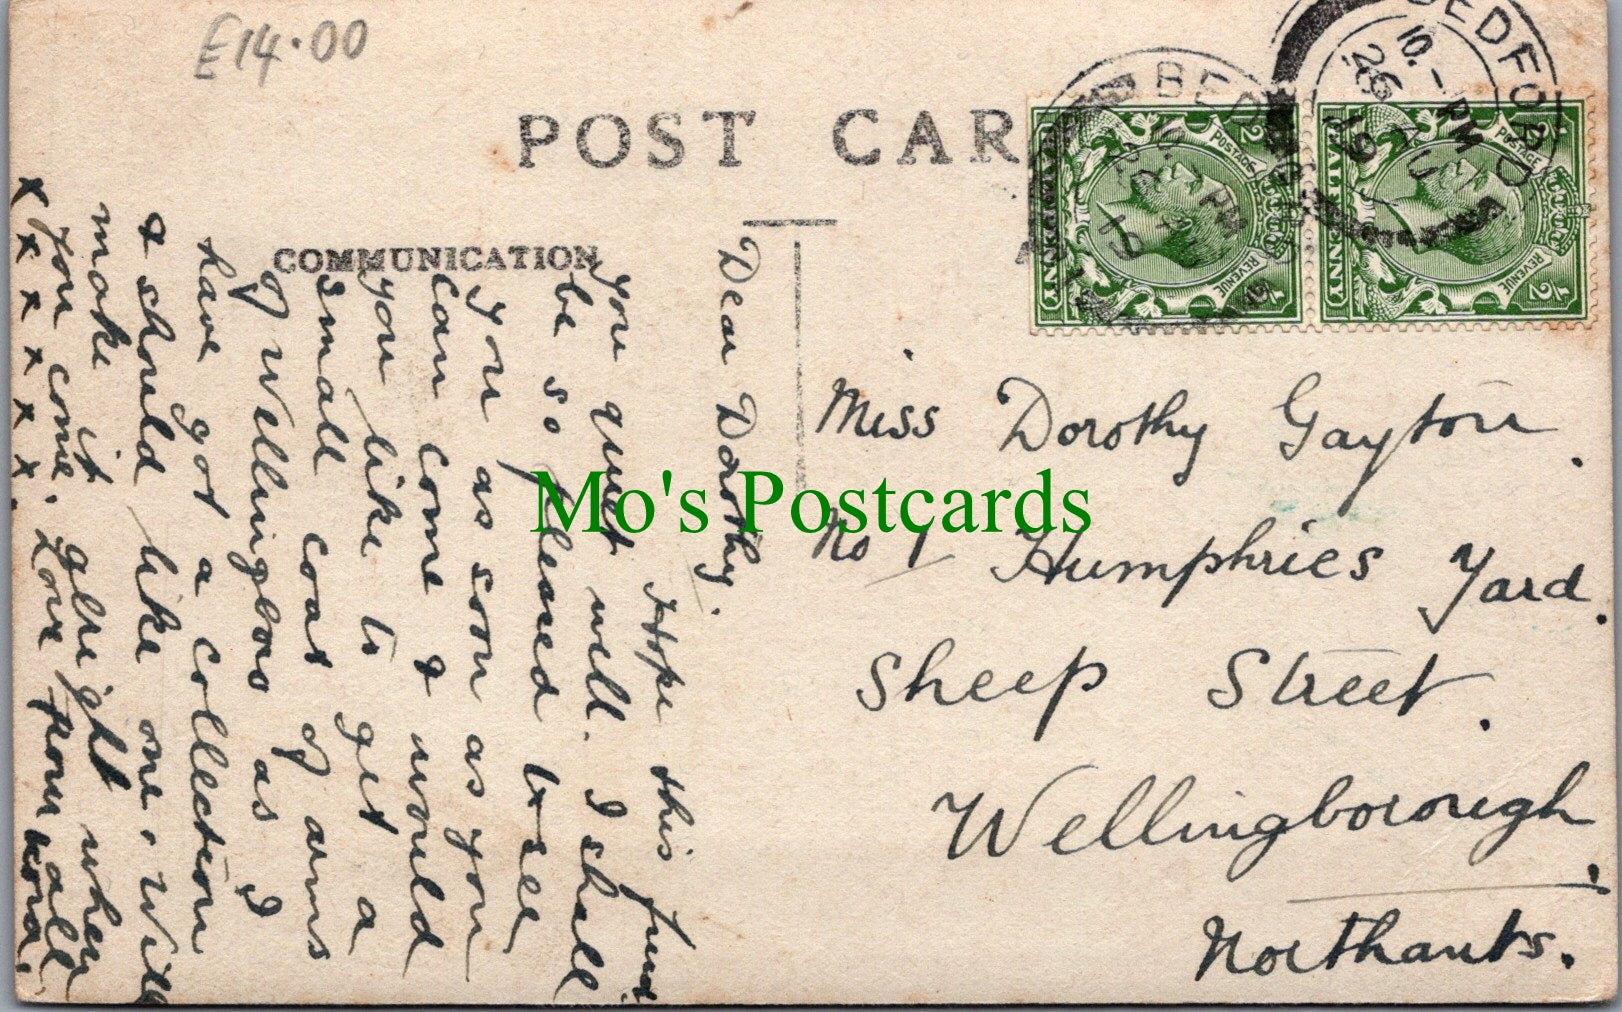 £14.00
POST CAR
COMMUNICATION
BEDFORD
10.-PM
26
AU
19
BED
POSTAGE
REVENUE
HALFPENNY
1/2
POSTAGE
REVENUE
1/2
Miss Dorothy Gayton.
No 1 Humphries Yard.
Sheep Street.
Wellingborough.
Northants.
Dear Dorothy.
Hope this find
you quiet well. I shall
be so pleased to see
you as soon as you
can come & would
you like to get a
small coat of arms
of Wellingboro as I
have got a collection
& should like one. Will
make it alright when
you come. Love from all
x x x x x x x. Nora.
Mo's Postcards